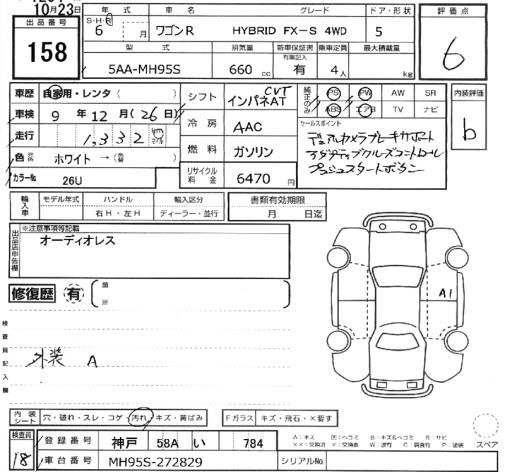 10月23日
出品番号
158
S・H・R 年式
6 月
車名
ワゴンR
グレード
HYBRID FX-S 4WD
ドア・形状
5
評価点
6
型式
5AA-MH95S
排気量
660 cc
新車保証書
有無記入
有
乗車定員
4人
最大積載量
kg
車歴 自家用・レンタ( )
シフト インパネAT CVT
純正のみ
PS PW AW SR
ABS エアB TV ナビ
内装評価
b
車検 9年 12月 (26日)
冷房 AAC
セールスポイント
デュアルカメラブレーキサポート
アダプティブクルーズコントロール
プッシュスタートボタン
走行 1,332 km
燃料 ガソリン
色 ホワイト →( )
カラーNo 26U
リサイクル料金 6470円
輸入車
モデル年式
ハンドル
右H・左H
輸入区分
ディーラー・並行
書類有効期限
月 日迄
出品店申告欄
※注意事項等記載
オーディオレス
修復歴 有
A1
検査員記入欄
外装 A
内装シート 穴・破れ・スレ・コゲ・汚れ・キズ・黄ばみ
Fガラス キズ・飛石・×要す
スペア
検査員
18
登録番号 神戸 58A い 784
車台番号 MH95S-272829
シリアルNo.